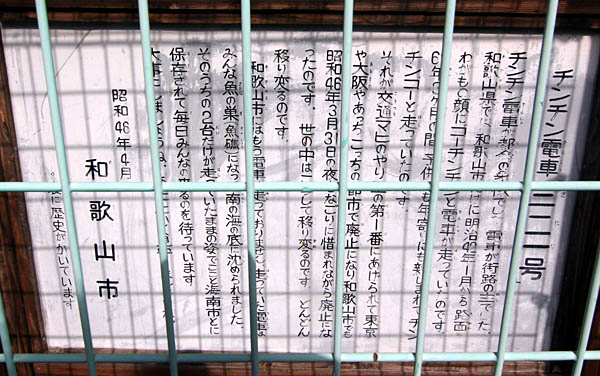 チンチン電車三二一号
チンチン電車が都会の 電車が街路の主でした。
和歌山県では、和歌山市 けに明治42年1月から路面
わがもの顔にゴーチンチンと電車が走っていたのです。
6年 ヶ月の間 子供 も年寄 にも親しまれてチン
チンゴーと走っていたのです。
それが交通マヒのやり の第1番にあげられて東京
や大阪やあっちこっちの都市で廃止になり和歌山市でも
昭和46年3月31日の夜 なごりに惜まれながら廃止にな
ったのです。世の中は こ して移り変るのです。どんどん
移り変るのです。
和歌山市にはもう電車 走っておりません。走っていた電車は
みんな魚の巣、魚礁になっ 南の海の底に沈められました。
そのうちの2台だけが走 ていたままの姿でここと海南市とに
保存されて毎日みんなの来るのを待っています
大事に
昭和46年4月
和歌山市
に歴史がかいています